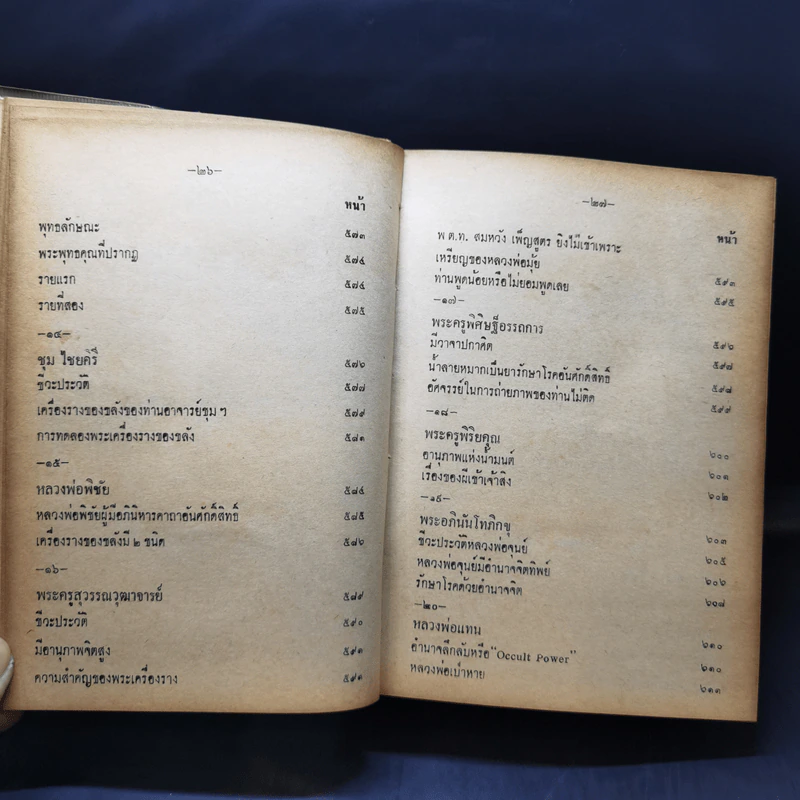 —๒๖—
หน้า
พุทธลักษณะ ๕๗๓
พระพุทธคุณที่ปรากฏ ๕๗๔
รายแรก ๕๗๔
รายที่สอง ๕๗๕
—๑๔—
ชุม ไชยคีรี ๕๗๖
ชีวะประวัติ ๕๗๗
เครื่องรางของขลังของท่านอาจารย์ชุม ฯ ๕๗๙
การทดลองพระเครื่องรางของขลัง ๕๘๑
—๑๕—
หลวงพ่อพิชัย ๕๘๔
หลวงพ่อพิชัยผู้มีอภินิหารคาถาอันศักดิ์สิทธิ์ ๕๘๕
เครื่องรางของขลังมี ๒ ชนิด ๕๘๖
—๑๖—
พระครูสุวรรณวุฒาจารย์ ๕๘๙
ชีวะประวัติ ๕๙๐
มีอนุภาพจิตสูง ๕๙๑
ความสำคัญของพระเครื่องราง ๕๙๑
—๒๗—
หน้า
พ.ต.ท. สมหวัง เพ็ญสูตร ยิงไม่เข้าเพราะ
เหรียญของหลวงพ่อมุ่ย ๕๙๓
ท่านพูดน้อยหรือไม่ยอมพูดเลย ๕๙๕
—๑๗—
พระครูพิศิษฐ์อรรถการ ๕๙๖
มีวาจาปกาศิต ๕๙๗
น้ำลายหมากเป็นยารักษาโรคอันศักดิ์สิทธิ์ ๕๙๘
อัศจรรย์ในการถ่ายภาพของท่านไม่ติด ๕๙๙
—๑๘—
พระครูพิริยคุณ ๖๐๐
อานุภาพแห่งน้ำมนต์ ๖๐๑
เรื่องของผีเข้าเจ้าสิง ๖๐๒
—๑๙—
พระอภินันโทภิกขุ ๖๐๓
ชีวะประวัติหลวงพ่อจุนย์ ๖๐๕
หลวงพ่อจุนย์มีอำนาจจิตทิพย์ ๖๐๖
รักษาโรคด้วยอำนาจจิต ๖๐๗
—๒๐—
หลวงพ่อแทน ๖๑๐
อำนาจลึกลับหรือ "Occult Power" ๖๑๐
หลวงพ่อเป่าหาย ๖๑๑